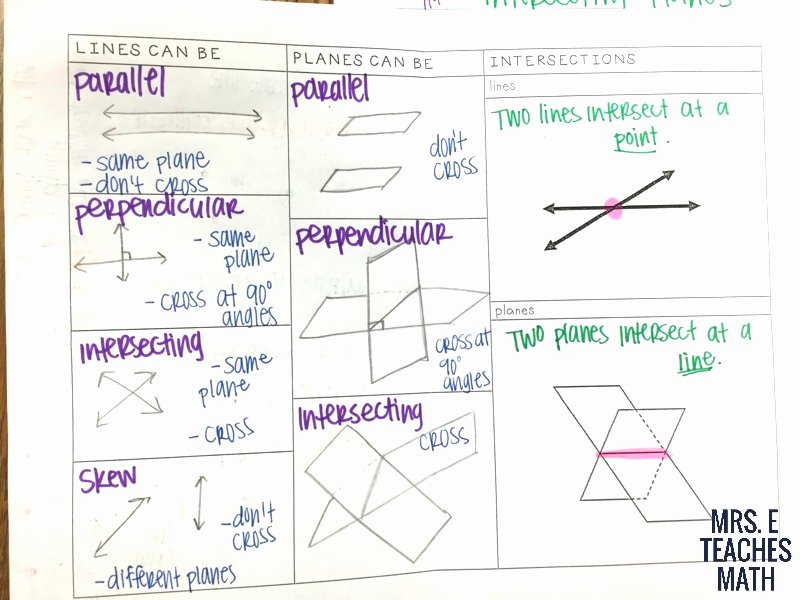 LINES CAN BE
parallel
-same plane
-don't cross
perpendicular
-same
plane
-cross at 90°
angles
Intersecting
-same
plane
-cross
Skew
-don't
cross
-different planes
PLANES CAN BE
parallel
don't
cross
perpendicular
cross at
90°
angles
Intersecting
cross
INTERSECTIONS
lines
TWO lines intersect at a
point.
planes
TWO planes intersect at a
line.
MRS. E
TEACHES
MATH